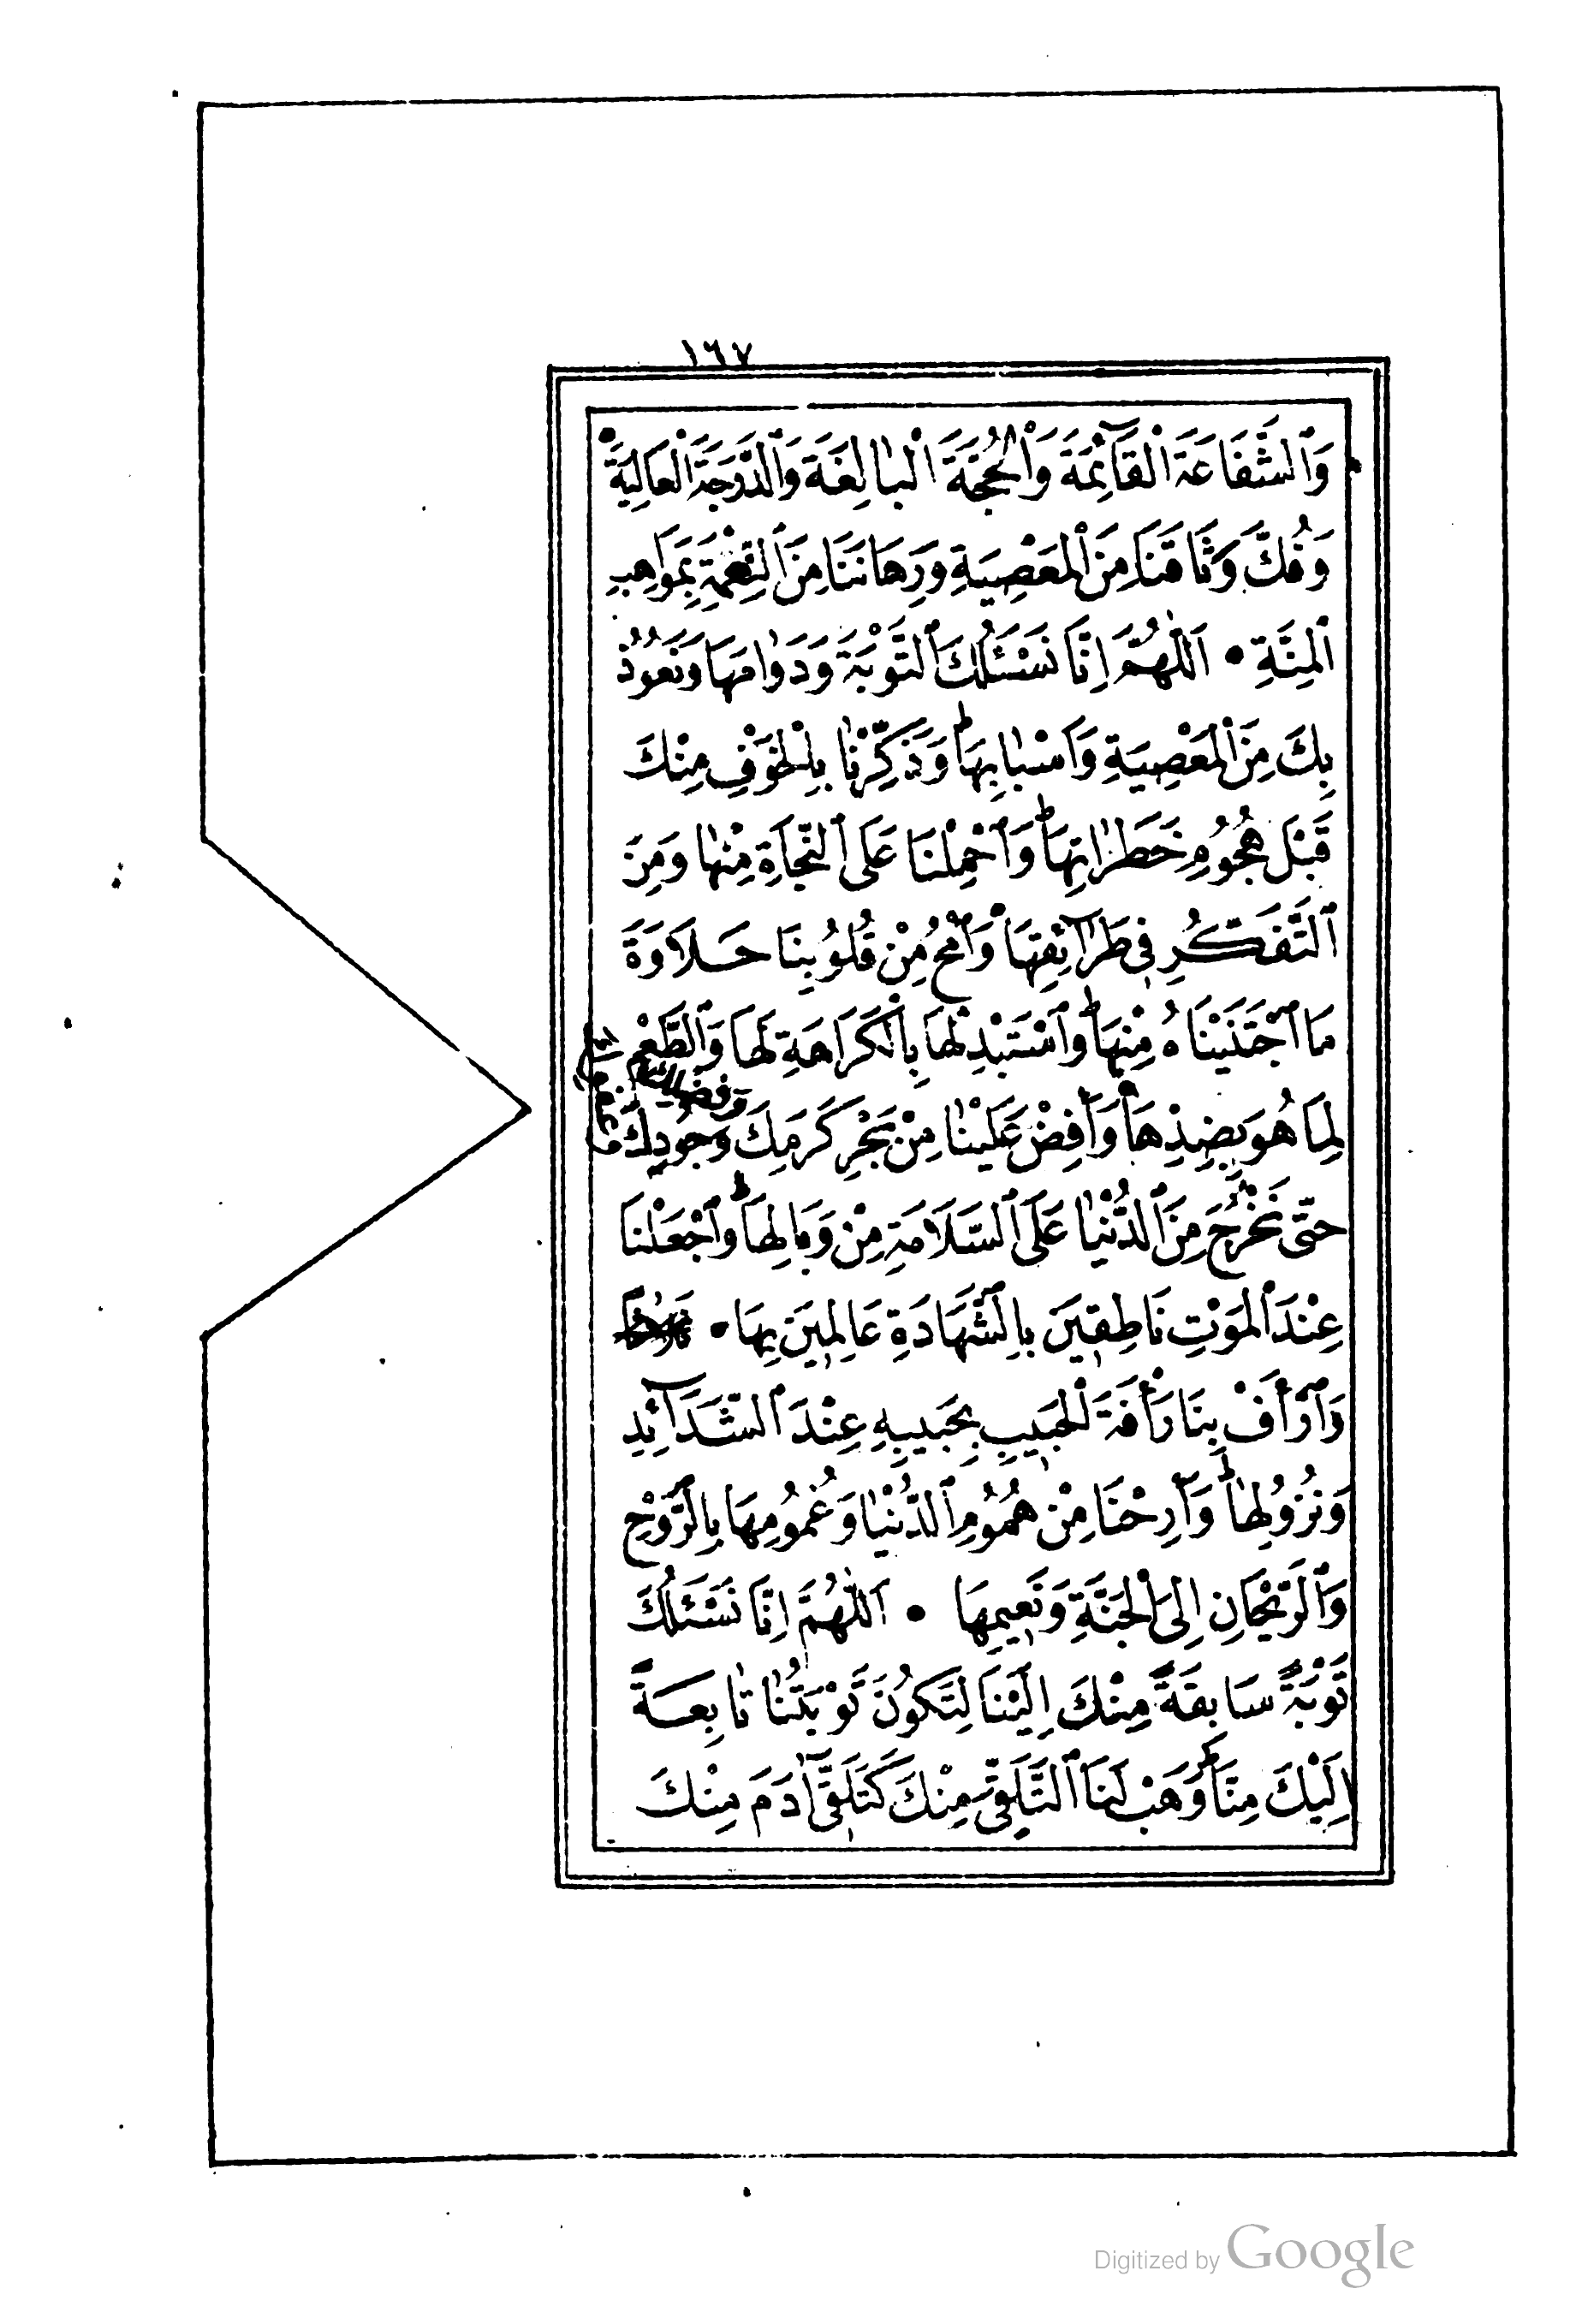 ١٦٧
وَٱلشَّفَاعَةَ ٱلْقَآئِمَةَ وَٱلْحُجَّةَ ٱلْبَالِغَةَ وَٱلدَّرَجَةَ ٱلْعَالِيَةَ
وَفُكَّ وَثَاقَنَا مِنَ ٱلْمَعْصِيَةِ وَرِهَانَنَا مِنَ ٱلنِّعْمَةِ بِمَوَاهِبِ
ٱلْمِنَّةِ • اَللّٰهُمَّ اِنَّا نَسْئَلُكَ ٱلتَّوْبَةَ وَدَوَامَهَا وَنَعُوذُ
بِكَ مِنَ ٱلْمَعْصِيَةِ وَاَسْبَابِهَا وَذَكِّرْنَا بِالْخَوْفِ مِنْكَ
قَبْلَ هُجُومِ خَطَرَاتِهَا وَٱحْمِلْنَا عَلَى ٱلنَّجَاةِ مِنْهَا وَمِنَ
ٱلتَّفَكُّرِ فِي طَرَآئِقِهَا وَٱمْحُ مِنْ قُلُوبِنَا حَلَاوَةَ
مَا ٱجْتَنَيْنَاهُ مِنْهَا وَٱسْتَبْدِلْهَا بِالْكَرَاهَةِ لَهَا وَٱلطَّعْمِ
لِمَا هُوَ بِضِدِّهَا وَاَفِضْ عَلَيْنَا مِنْ بَحْرِ كَرَمِكَ وَجُودِكَ
وفضلك
حَتّٰى نَخْرُجَ مِنَ ٱلدُّنْيَا عَلَى ٱلسَّلَامَةِ مِنْ وَبَالِهَا وَٱجْعَلْنَا
عِنْدَ ٱلْمَوْتِ نَاطِقِينَ بِالشَّهَادَةِ عَالِمِينَ بِهَا •
وَٱرْاَفْ بِنَا رَأْفَةَ ٱلْحَبِيبِ بِحَبِيبِهِ عِنْدَ ٱلشَّدَآئِدِ
وَنُزُولِهَا وَاَرِحْنَا مِنْ هُمُومِ ٱلدُّنْيَا وَغُمُومِهَا بِالرَّوْحِ
وَٱلرَّيْحَانِ اِلَى ٱلْجَنَّةِ وَنَعِيمِهَا • اَللّٰهُمَّ اِنَّا نَسْئَلُكَ
تَوْبَةً سَابِقَةً مِنْكَ اِلَيْنَا لِتَكُونَ تَوْبَتُنَا تَابِعَةً
اِلَيْكَ مِنَّا وَهَبْ لَنَا ٱلتَّلَقِّيَ مِنْكَ كَتَلَقِّي آدَمَ مِنْكَ
Digitized by Google